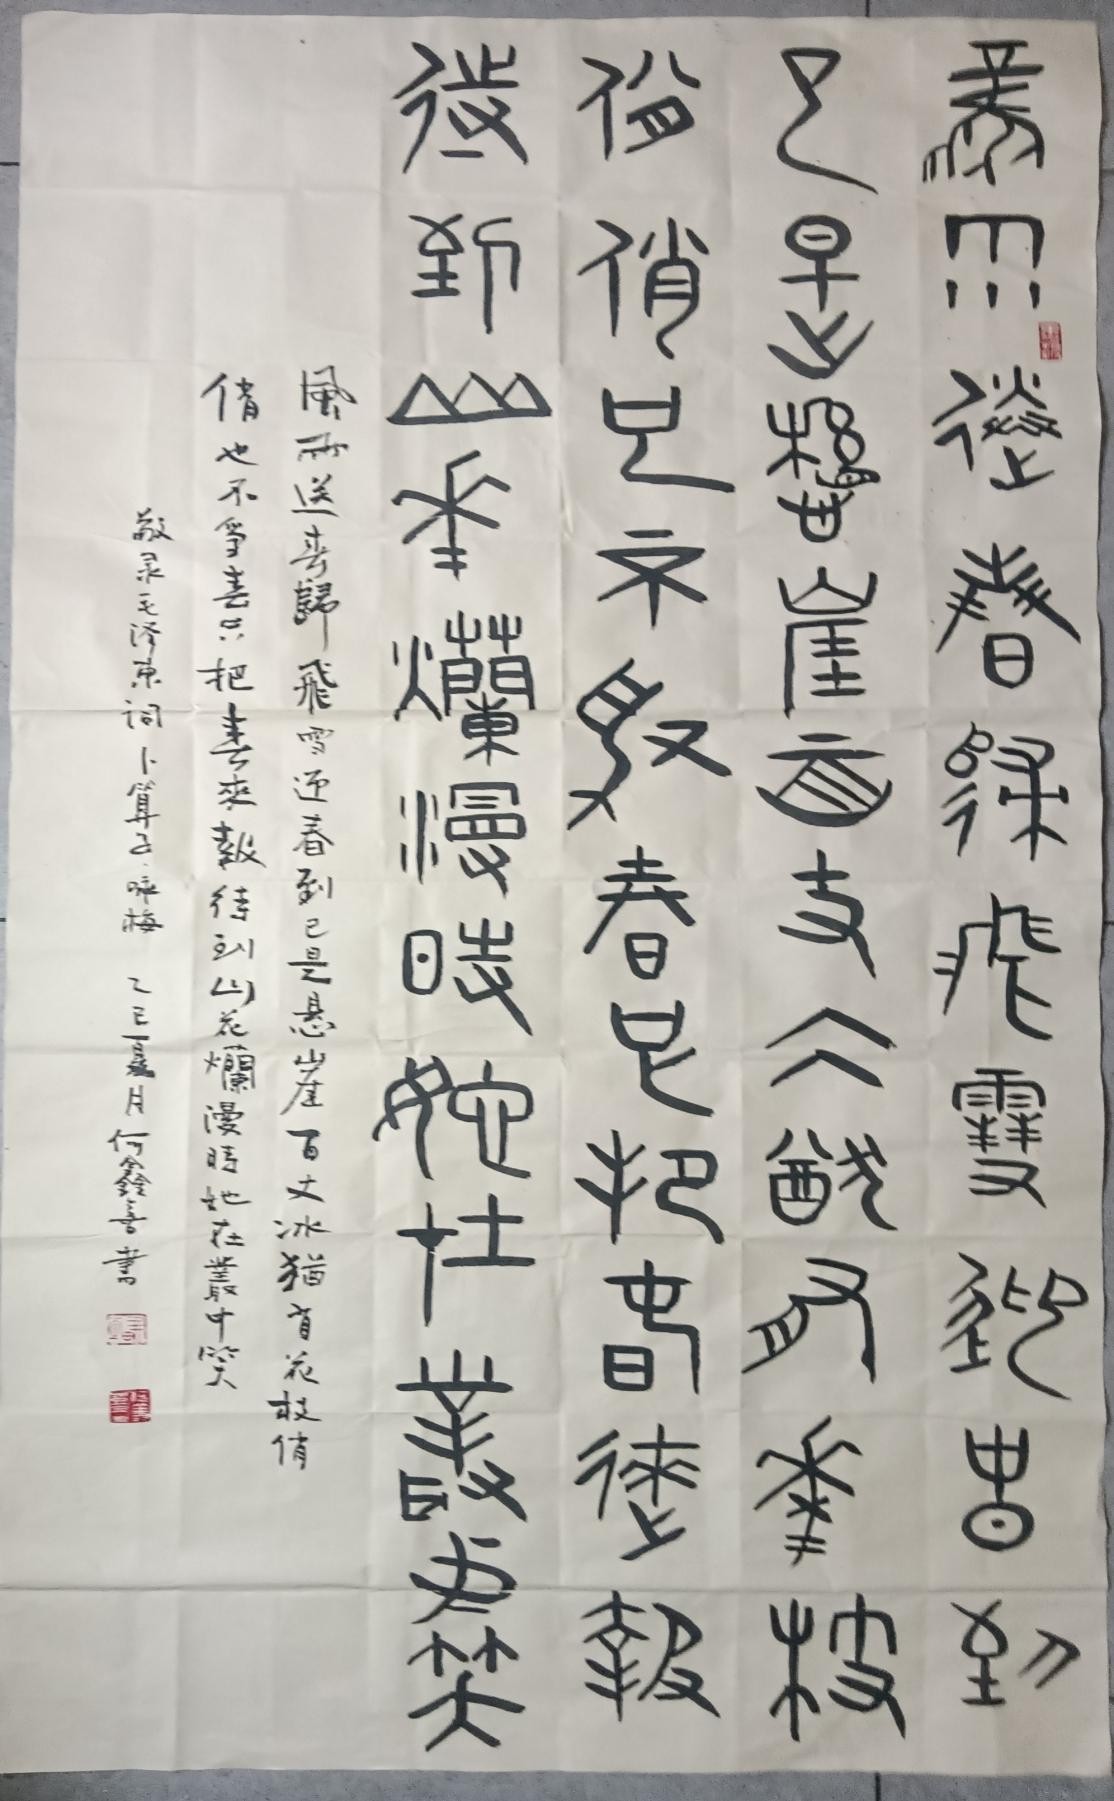 風雨送春歸飛雪迎春到
已是懸崖百丈冰猶有花枝
俏俏也不爭春只把春來報
待到山花爛漫時她在叢中笑
風雨送春歸飛雪迎春到已是悬崖百丈冰猶有花枝俏
俏也不爭春只把春來報待到山花爛漫時她在叢中笑
敬录毛泽东词卜算子·咏梅 乙巳夏月何鑫書